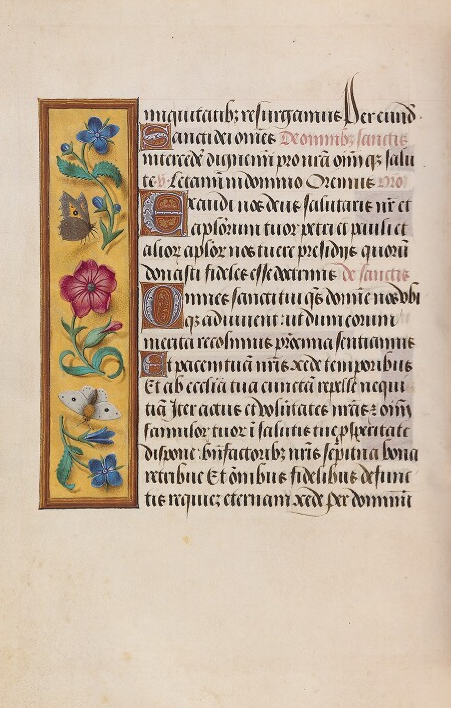 iniquitatibz resurgamus Per eund
Sancti dei omnes De omnibz sanctis
intercede dignemi pro nra oim qz salu
te v Letamini in domino Oremus oro
Exaudi nos deus salutaris nr et
aplorum tuor petri et pauli et
alior aplor nos tuere presidiis quoru
donasti fideles esse doctrinis de sanctis
Omnes sancti tui qs domie nos ubi
qz adiuvent ut dum eorum
merita recolimus procinia sentiamus
Et pacem tuam nris xcede temporibus
Et ab ecclia tua cunctam repelle nequi
tia Iter actus et volutates nras et oim
famulor tuor i salutis tue psperitate
dispone bnfactoribz nris sepitna bona
retribue Et omibus fidelibus defunc
tis requiez eternam xcede Per dominu